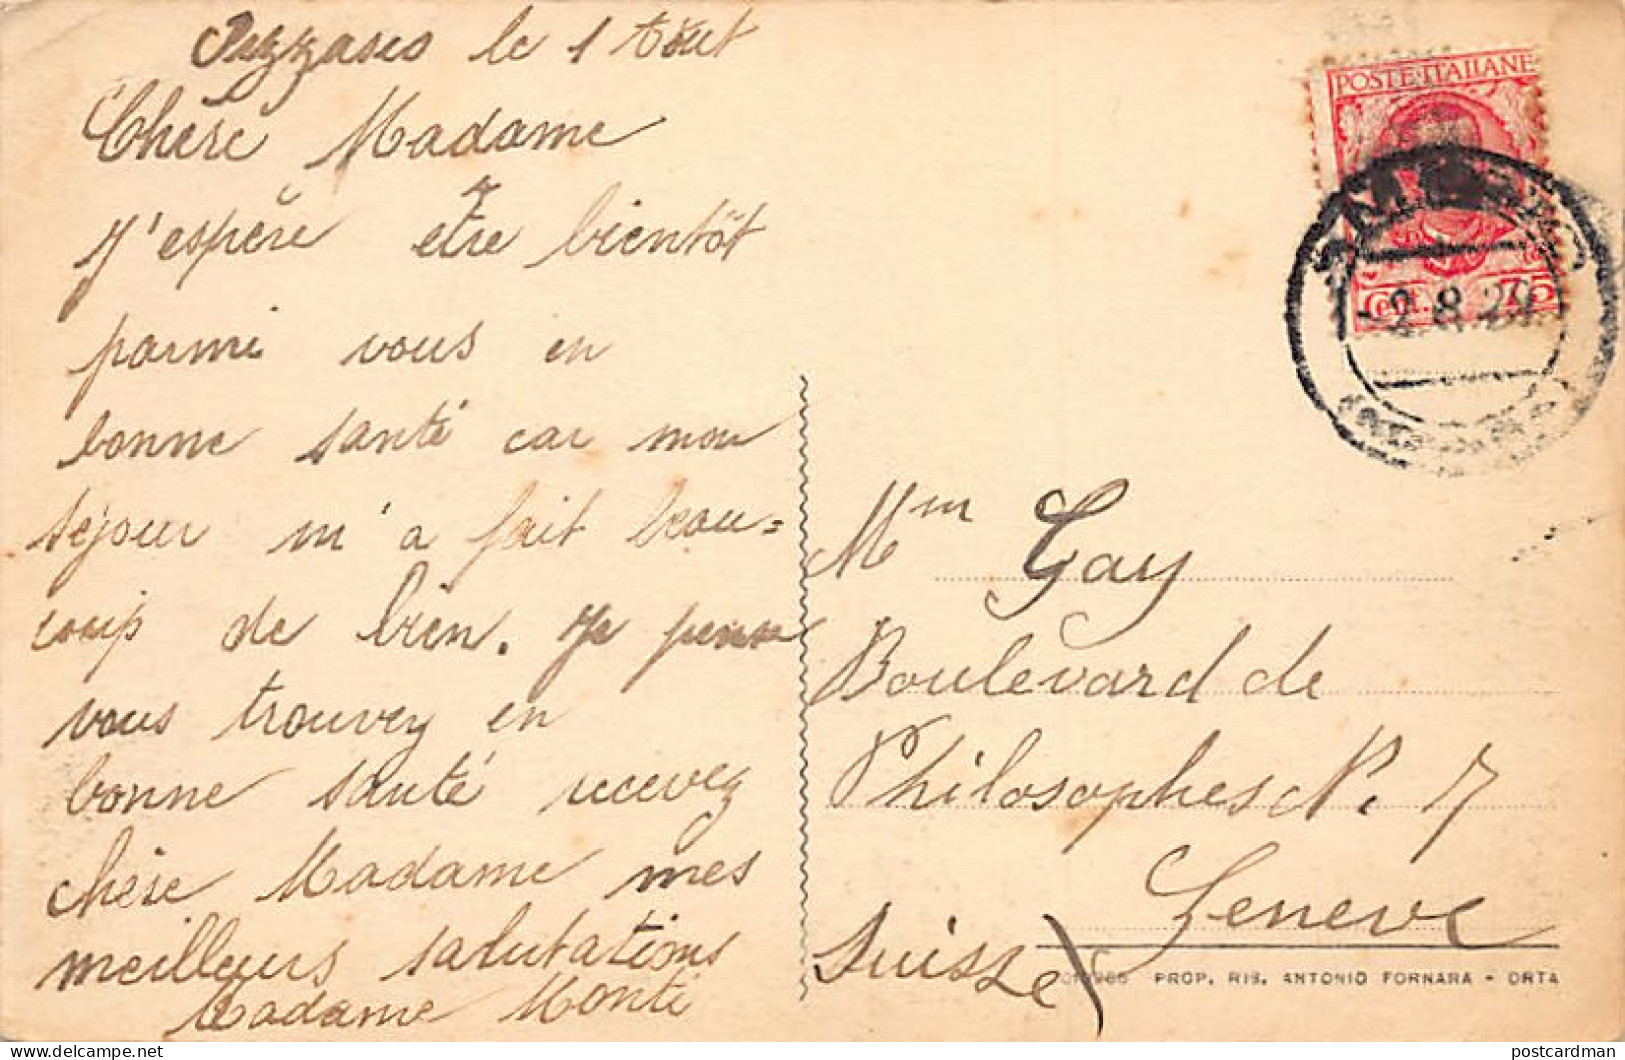 le 1 Août
Chère Madame
j'espère être bientôt
parmi vous en
bonne santé car mon
séjour m'a fait beau=
coup de bien. Je pense
vous trouvez en
bonne santé recevez
chère Madame mes
meilleurs salutations
Madame Monti
POSTE ITALIANE
Cent. 75
-2.8.29
Mm Gay
Boulevard de
Philosophes N. 7
Geneve
Suisse
PROP. RIS. ANTONIO FORNARA - ORTA
postcardman